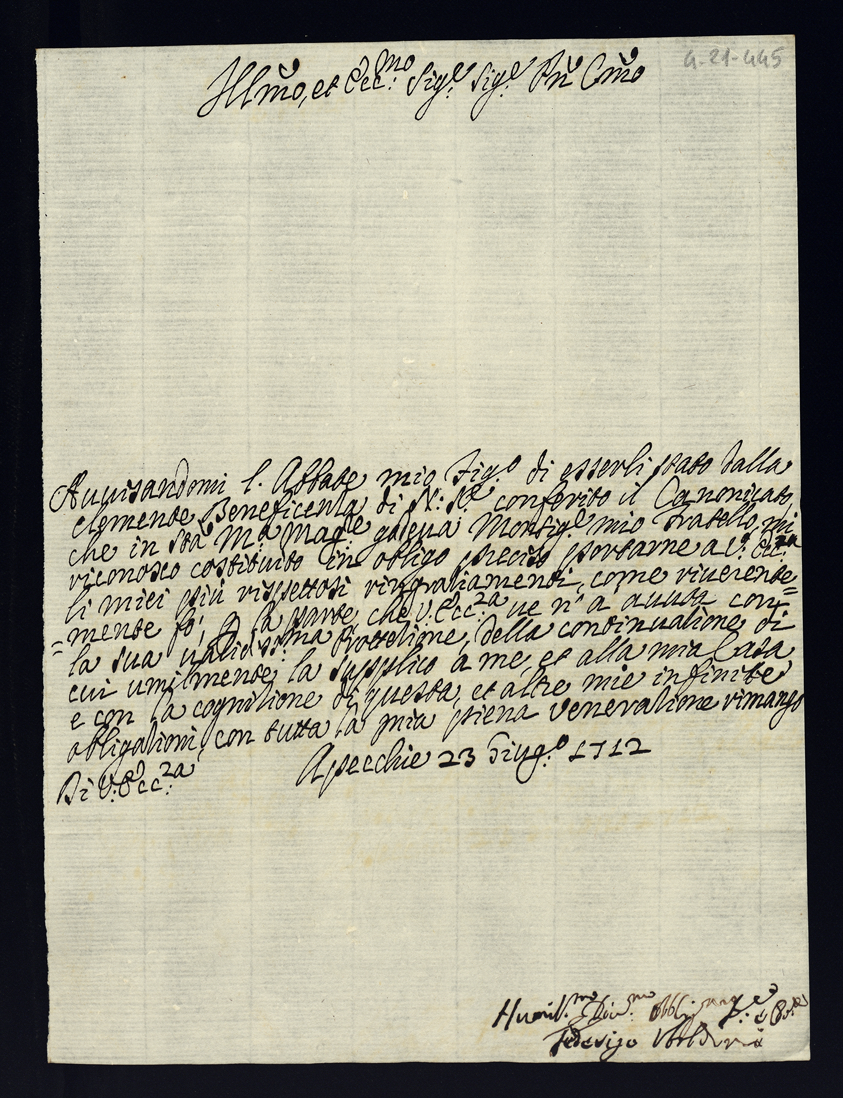 4-21-445
Ill.mo, et Ecc.mo Sig.e Sig.e Pñ Cm̃o
Avvisandomi l'Abbate mio Fig.o di esserli stato dalla
clemente Beneficenza di N: S.e conferito il Canonicato,
che in Sta Ma Mag.e godeva Monsig.e mio Fratello, mi
riconosco costituito in obligo preciso portarne a V: Ecc:za
li miei più rispettosi ringratiamenti, come riverente=
=mente fò, p la parte, che V: Ecc:za ve n'à avuta con
la sua validiss:ma Prottetione, della continuatione di
cui umilmente la supplico à me, et alla mia Casa
e con la cognitione di questa, et altre mie infinite
obligationi, con tutta la mia piena veneratione rimango
Di V: Ecc:za Apecchie 23 Giug:o 1712
Humil.mo Div.mo Obblig.mo
Federigo